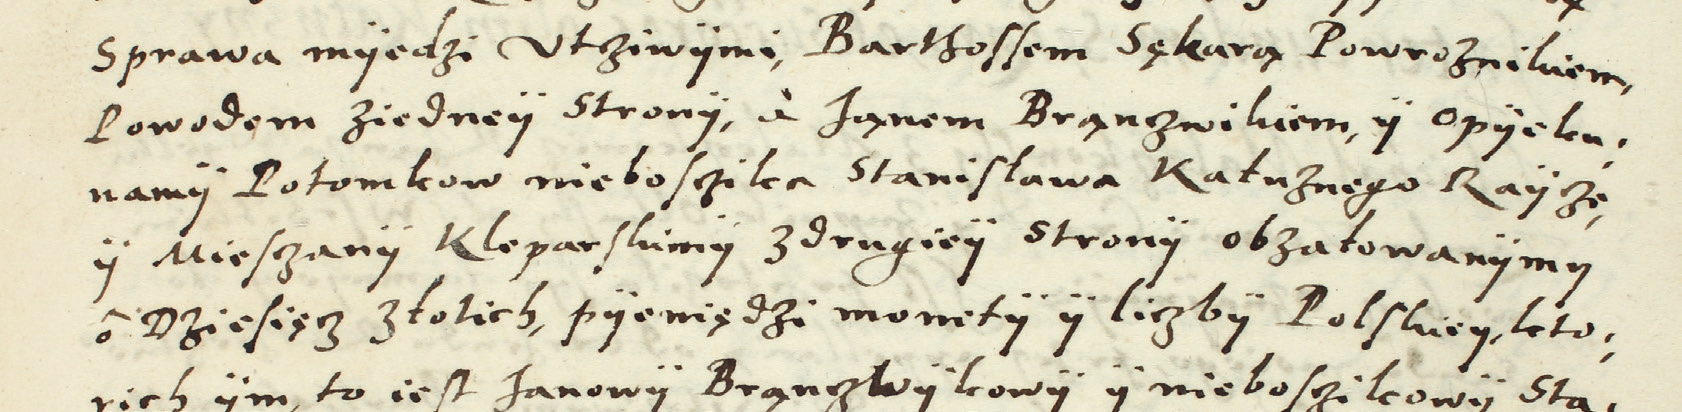 Sprawa mÿedzi Vtziwÿmi, Barthossem Sękarą Powroznikiem,
Powodęm ziedneÿ Stronÿ, à Jąnem Brąnczwikiem, ÿ Opÿeku,
namÿ Potomkow nieboszika Stanisława Katuznego Rayzę,
ÿ Mieszanÿ Kleparskimÿ zdrugieÿ Stronÿ obzatowanÿmy
ō Dziesięcz złotich, pÿeniędzi monetÿ ÿ liczbÿ Polskiey, kto,
rich ÿm, to iest Janowÿ Brąnczwÿkowÿ ÿ nieboszikowÿ Sta,